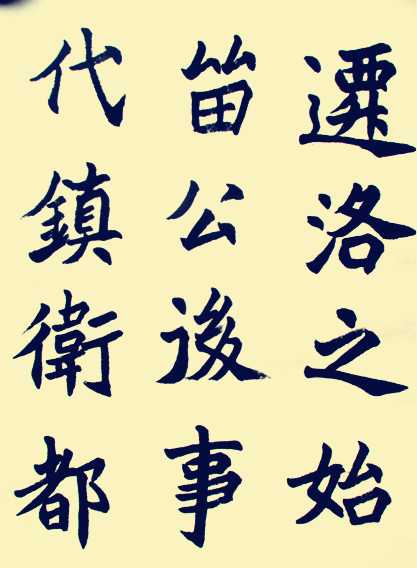 遷洛之始
留公後事
代鎮衛都